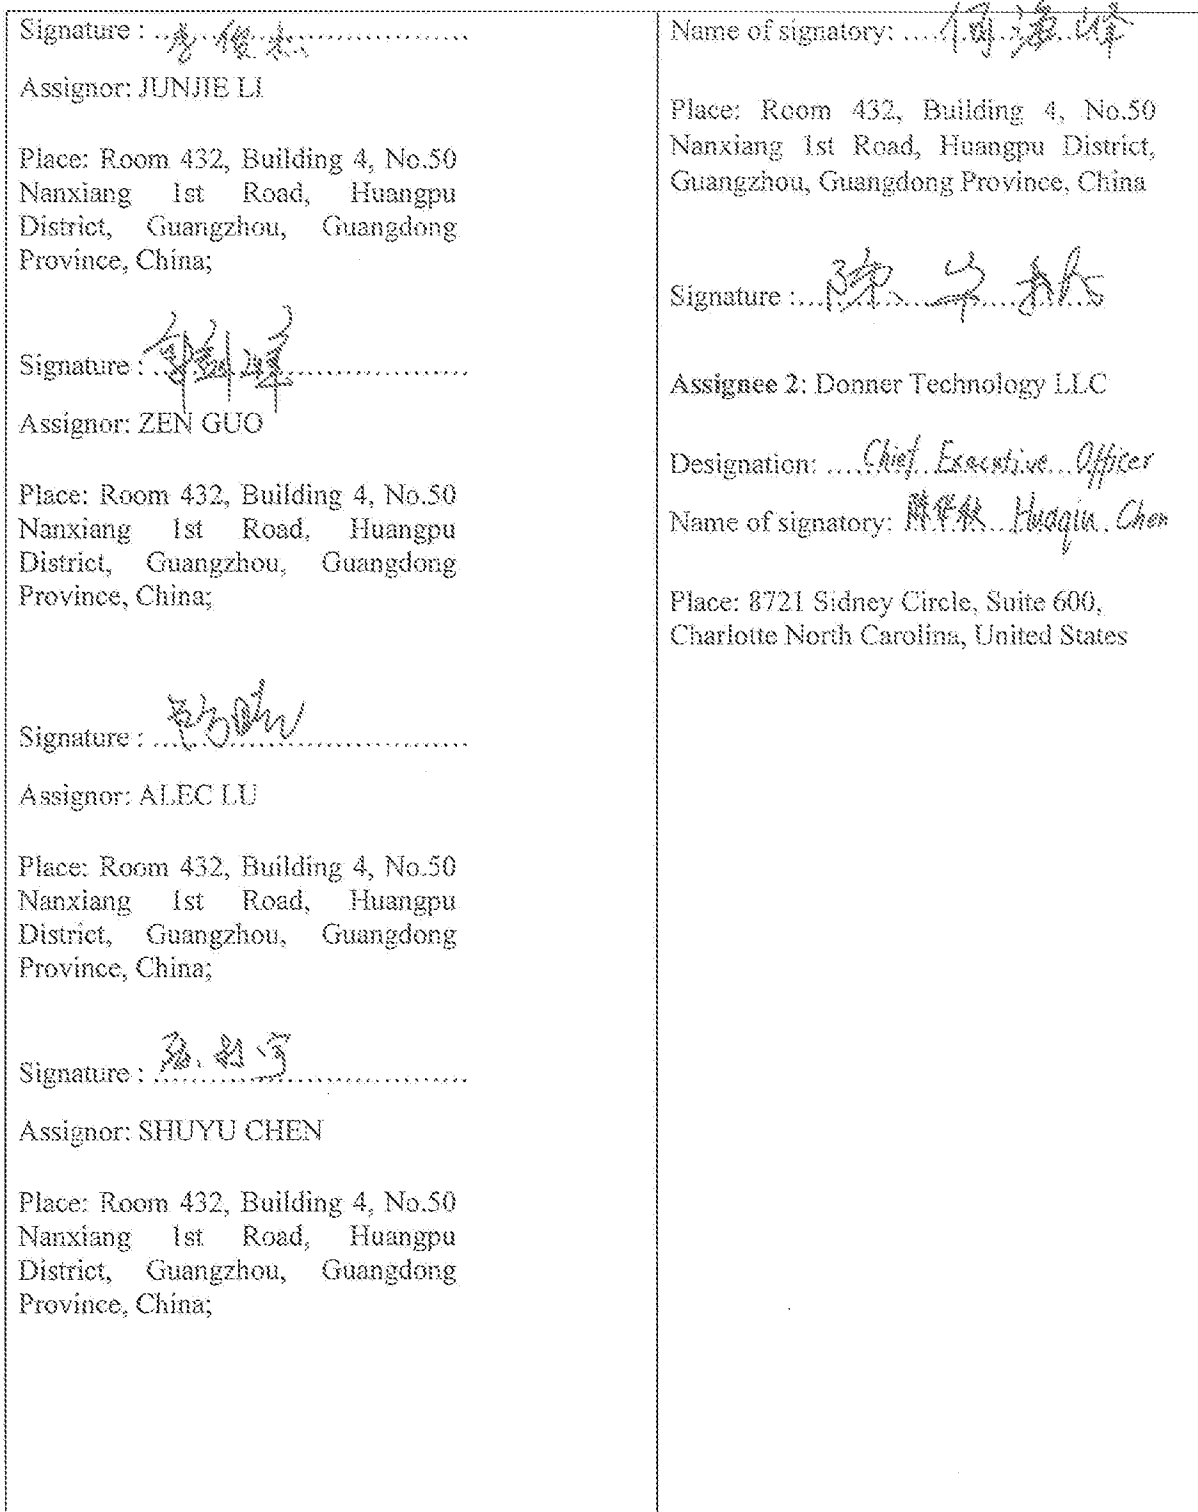 Signature : ........................................
Assignor: JUNJIE LI
Place: Room 432, Building 4, No.50
Nanxiang 1st Road, Huangpu
District, Guangzhou, Guangdong
Province, China;
Signature : ........................................
Assignor: ZEN GUO
Place: Room 432, Building 4, No.50
Nanxiang 1st Road, Huangpu
District, Guangzhou, Guangdong
Province, China;
Signature : ........................................
Assignor: ALEC LU
Place: Room 432, Building 4, No.50
Nanxiang 1st Road, Huangpu
District, Guangzhou, Guangdong
Province, China;
Signature : ........................................
Assignor: SHUYU CHEN
Place: Room 432, Building 4, No.50
Nanxiang 1st Road, Huangpu
District, Guangzhou, Guangdong
Province, China;
Name of signatory:
Place: Room 432, Building 4, No.50
Nanxiang 1st Road, Huangpu District,
Guangzhou, Guangdong Province, China
Signature :
Assignee 2: Donner Technology LLC
Designation: Chief Executive Officer
Name of signatory: Huaqiu Chen
Place: 8721 Sidney Circle, Suite 600,
Charlotte North Carolina, United States